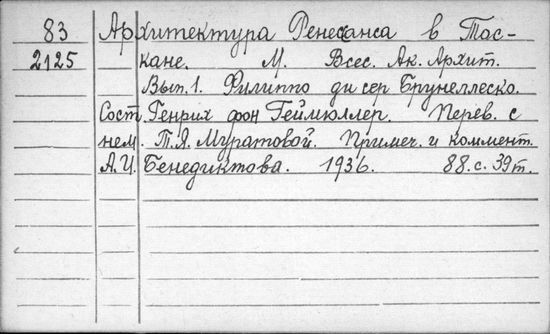 83 Архитектура Ренесанса в Тос-
2125 кане. М. Всес. Ак. Архит.
Вып. 1. Филиппо ди сер Брунеллеско.
Сост. Генрих фон Геймюллер. Перев. с
нем. Т.Я. Муратовой. Примеч. и коммент.
А.И. Бенедиктова. 1936. 88.с. 39т.